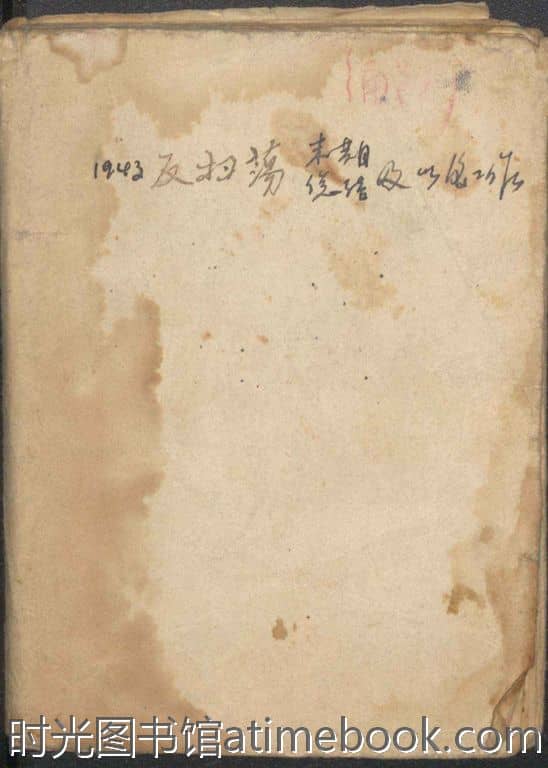 1943 反扫荡 末期总结 及以后工作
时光图书馆atimebook.com